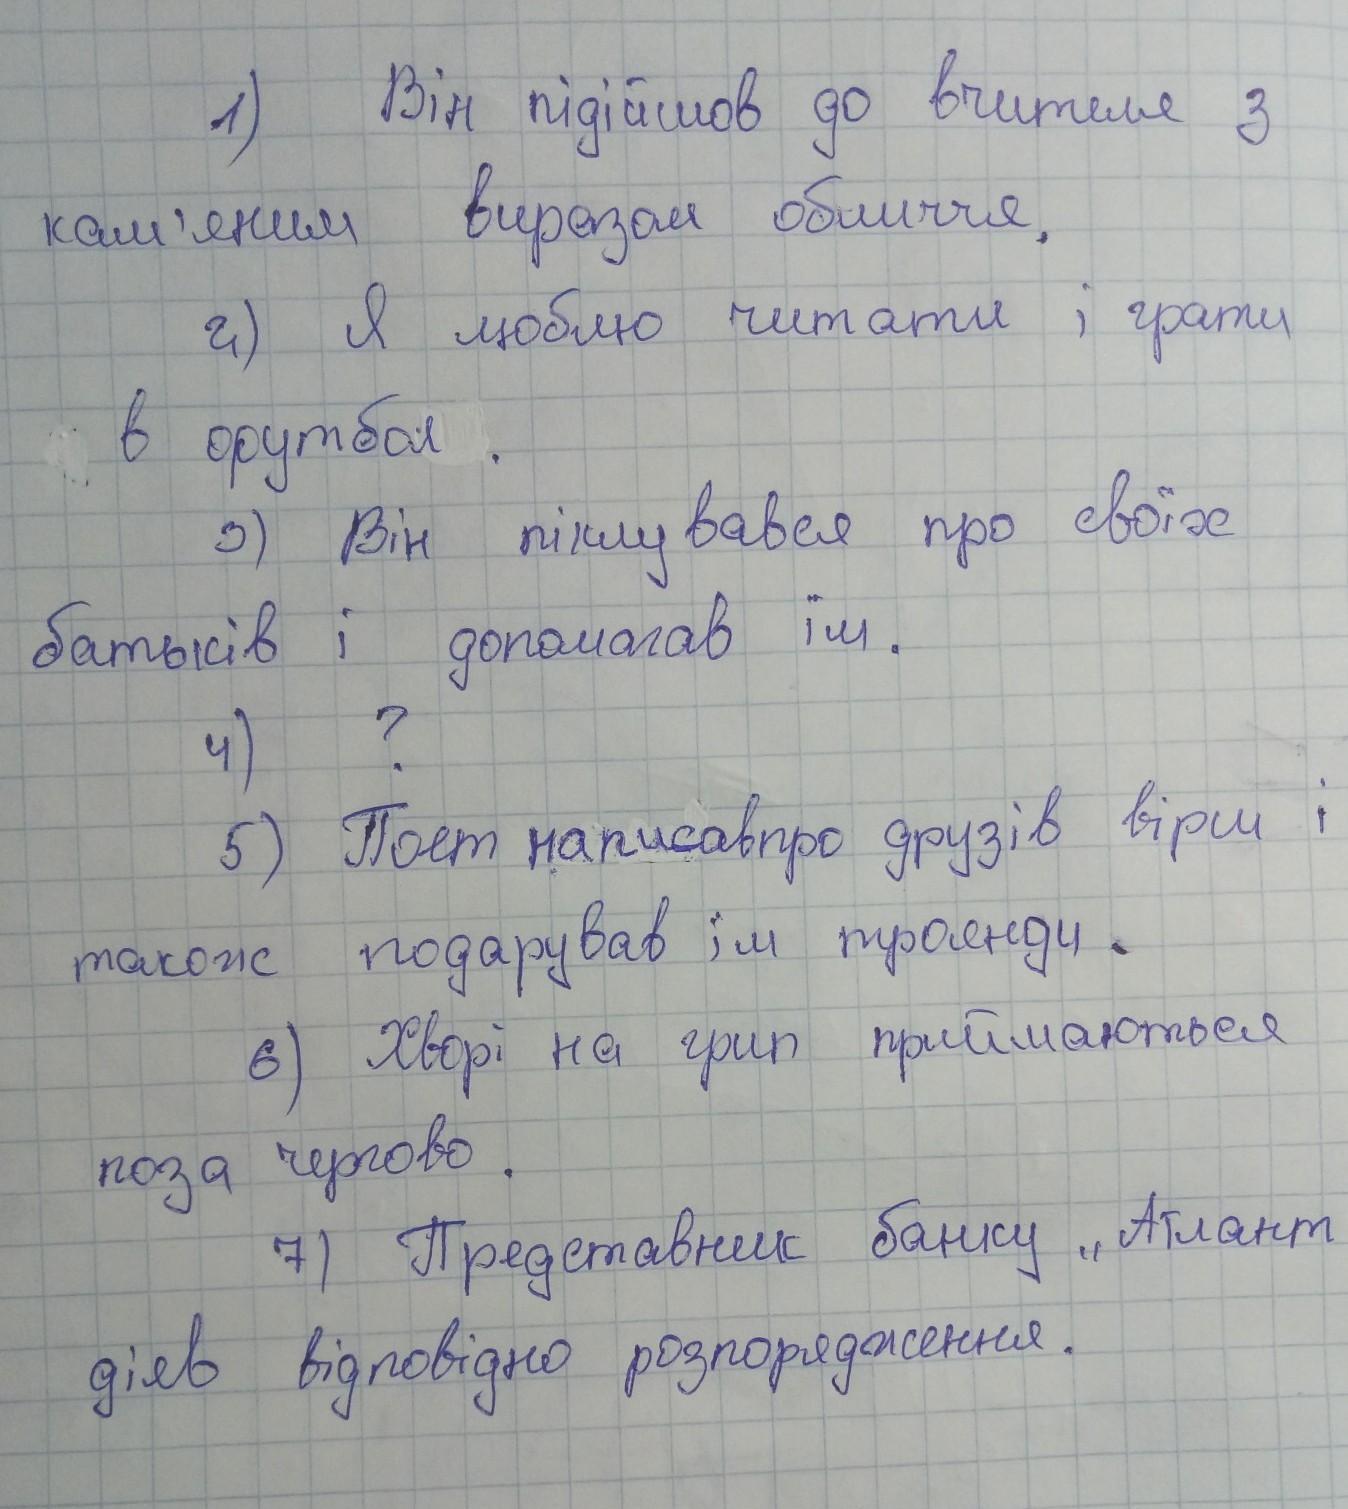 1) Він підійшов до вчителя з
кам'яним виразом обличчя.
2) Я люблю читати і грати
в футбол.
3) Він піклувався про своїх
батьків і допомагав їм.
4) ?
5) Поет написавпро друзів вірш і
також подарував їм троянди.
6) Хворі на грип приймаються
поза чергово.
7) Представник банку „Атлант
діяв відповідно розпорядження.